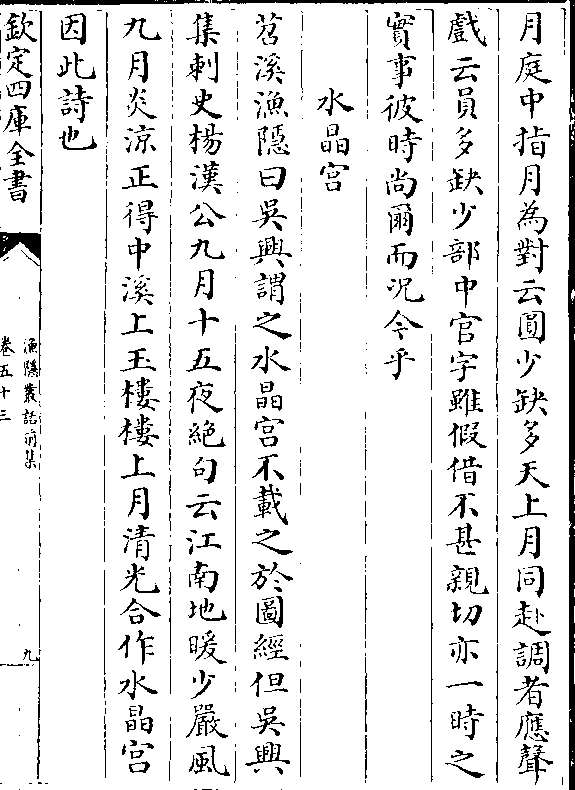 月庭中指月為對云圓少缺多天上月同赴調者應聲
戲云員多缺少部中官字雖假借不甚親切亦一時之
實事彼時尚爾而况今乎
水晶宫
苕溪漁隠曰吳興謂之水晶宫不載之於圖經但吳興
集刺史楊漢公九月十五夜絶句云江南地暖少嚴風
九月炎涼正得中溪上玉樓樓上月清光合作水晶宫
因此詩也
欽定四庫全書
漁隠叢話前集
卷五十三
九